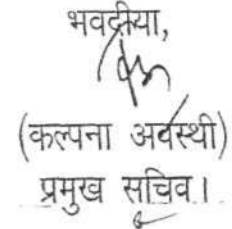 भवदीया,
(कल्पना अवस्थी)
प्रमुख सचिव।